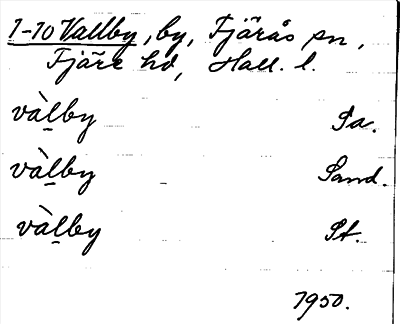 1-10 Vallby, by, Fjärås sn,
Fjäre hd, Hall. l.
và̱lby Pa.
và̱lby Sand.
và̱lby St.
1950.